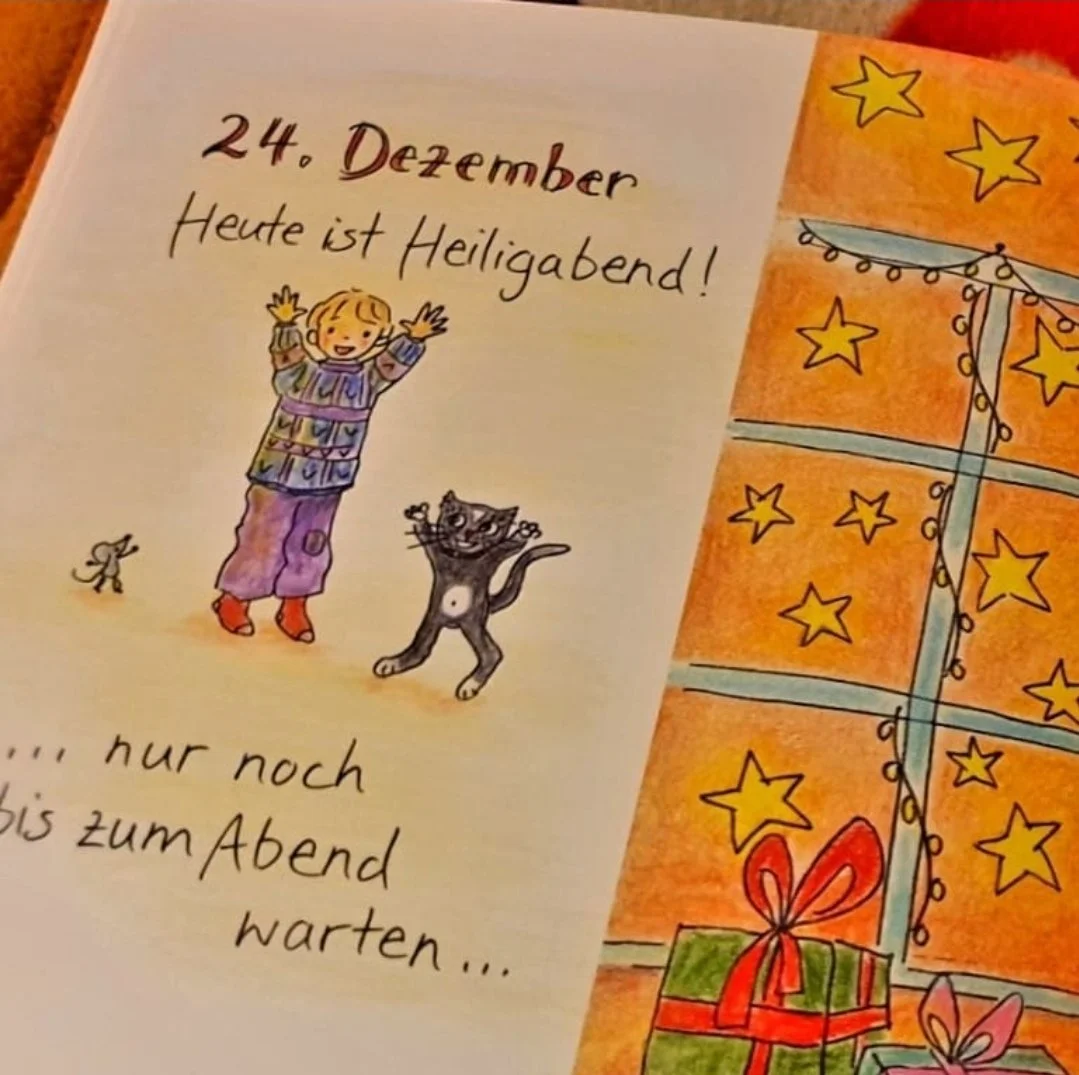 24. Dezember
Heute ist Heiligabend!
... nur noch
bis zum Abend
warten...